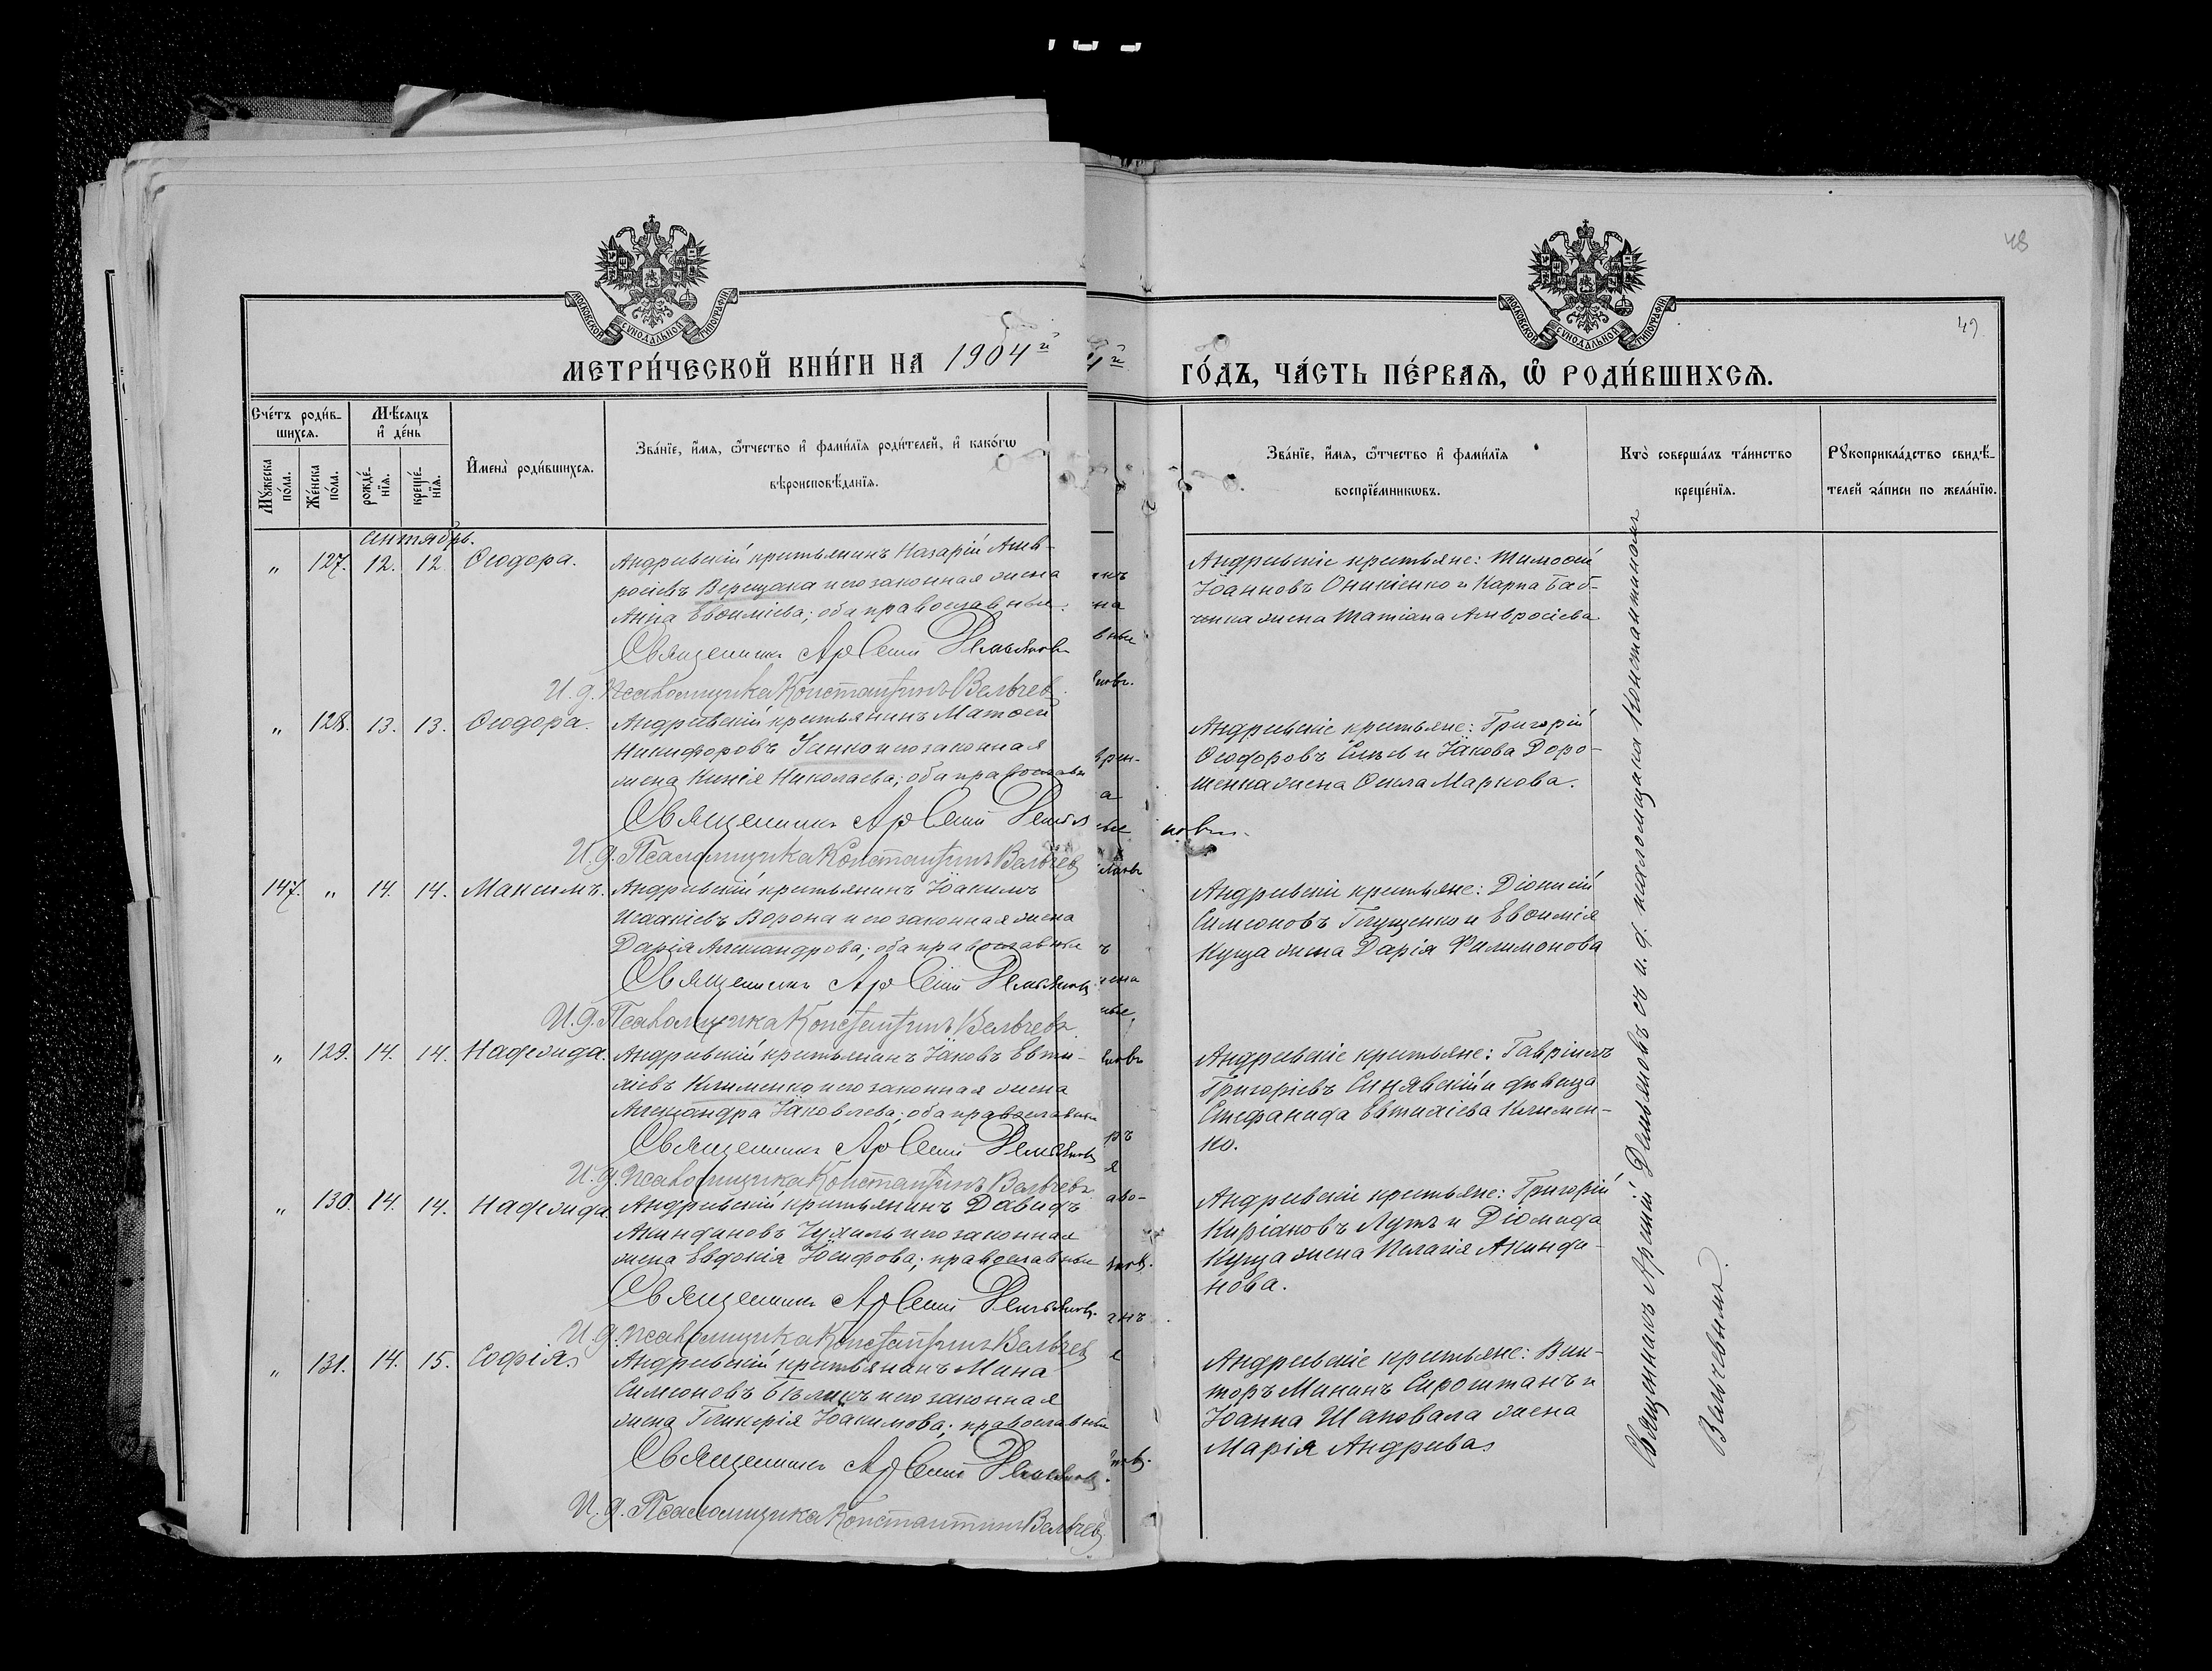 48
49
МОСКОВСКОЙ СѴНОДАЛЬНОЙ ТИПОГРАФІИ
МОСКОВСКОЙ СѴНОДАЛЬНОЙ ТИПОГРАФІИ
МЕТРИ́ЧЕСКОЙ КНИ́ГИ НА 1904й
ГО́ДЪ, ЧА́СТЬ ПЕ́РВАѦ, Ѽ РОДИ́ВШИХСѦ.
Сче́тъ роди́в-
шихсѧ.
Мѣ́сѧцъ
и҆ де́нь
Мꙋ́жеска по́ла.
Же́нска по́ла.
рожде́-
нїѧ.
креще́-
нїѧ.
И҆мена̀ роди́вшихсѧ.
Зва́нїе, и҆́мѧ, ѻ҆́тчество и҆ фами́лїѧ роди́телей, и҆ како́гѡ
вѣроисповѣ́данїѧ.
Зва́нїе, и҆́мѧ, ѻ҆́тчество и҆ фами́лїѧ
воспрїе́мникѡвъ.
Кто̀ соверша́лъ та́инство
креще́нїѧ.
Рꙋкоприкла́дство свидѣ́-
телей за́писи по жела́нїю.
Сентябрь.
" 127. 12. 12 Ѳеодора.
Андреевскій крестьянинъ Назарій Амв-
росіевъ Верещака и его законная жена
Анна Евѳиміева; оба православные.
Священникъ Арсеній Демьяновъ
И. д. Псаломщика Константинъ Вельчевъ.
Андреевскіе крестьяне: Тимоѳей
Іоанновъ Оникіенко и Карпа Баб-
жена Татіана Амвросіева
" 128. 13. 13. Ѳеодора.
Андреевскій крестьянинъ Матѳей
Никифоровъ и его законная
жена Ксенія Николаева; оба православн
Священникъ Арсеній Демья новъ.
И. д. Псаломщика Константинъ Вельчевъ
Андреевскіе крестьяне: Григорій
Ѳеодоровъ и Іакова Доро-
шенка жена Ѳекла Маркова.
147. " 14. 14. Максимъ.
Андреевскій крестьянинъ Іоакимъ
Исаакіевъ Ворона и его законная жена
Дарія Александрова; оба православные
Священникъ Арсеній Демьяновъ
И. д. Псаломщика Константинъ Вельчевъ
Андреевскіе крестьяне: Діонисій
Симеоновъ Глущенко и Евѳимія
Куща жена Дарія Филимонова
" 129. 14. 14. Надежда.
Андреевскій крестьянинъ Іаковъ Евти-
хіевъ Клименко и его законная жена
Александра Іаковлева; оба православные
Священникъ Арсеній Демьяновъ
И. д. Псаломщика Константинъ Вельчевъ
Андреевскіе крестьяне: Гавріилъ
Григоріевъ Синявскій и дѣвица
Стефанида Евтихіева Климен-
ко.
" 130. 14. 14. Надежда
Андреевскій крестьянинъ Давидъ
Акиндиновъ Чухиль и его законная
жена Евдокія Іосифова; православные
Священникъ Арсеній Демьяновъ.
И. д. Псаломщика Константинъ Вельчевъ
Андреевскіе крестьяне: Григорій
Киріаковъ и Діомида
Куща жена Пелагія Акинди-
нова.
" 131. 14. 15. Софія.
Андреевскій крестьянинъ Мина
Симеоновъ Бѣликъ и его законная
жена Гликерія Іоакимова; православные
Священникъ Арсеній Демьяновъ.
И. д. Псаломщика Константинъ Вельчевъ
Андреевскіе крестьяне: Вик-
торъ Мининъ Сироштанъ и
Іоанна Шаповала жена
Марія Андреева
Священникъ Арсеній Демьяновъ съ и. д. псаломщика Константиномъ
Вельчевымъ.